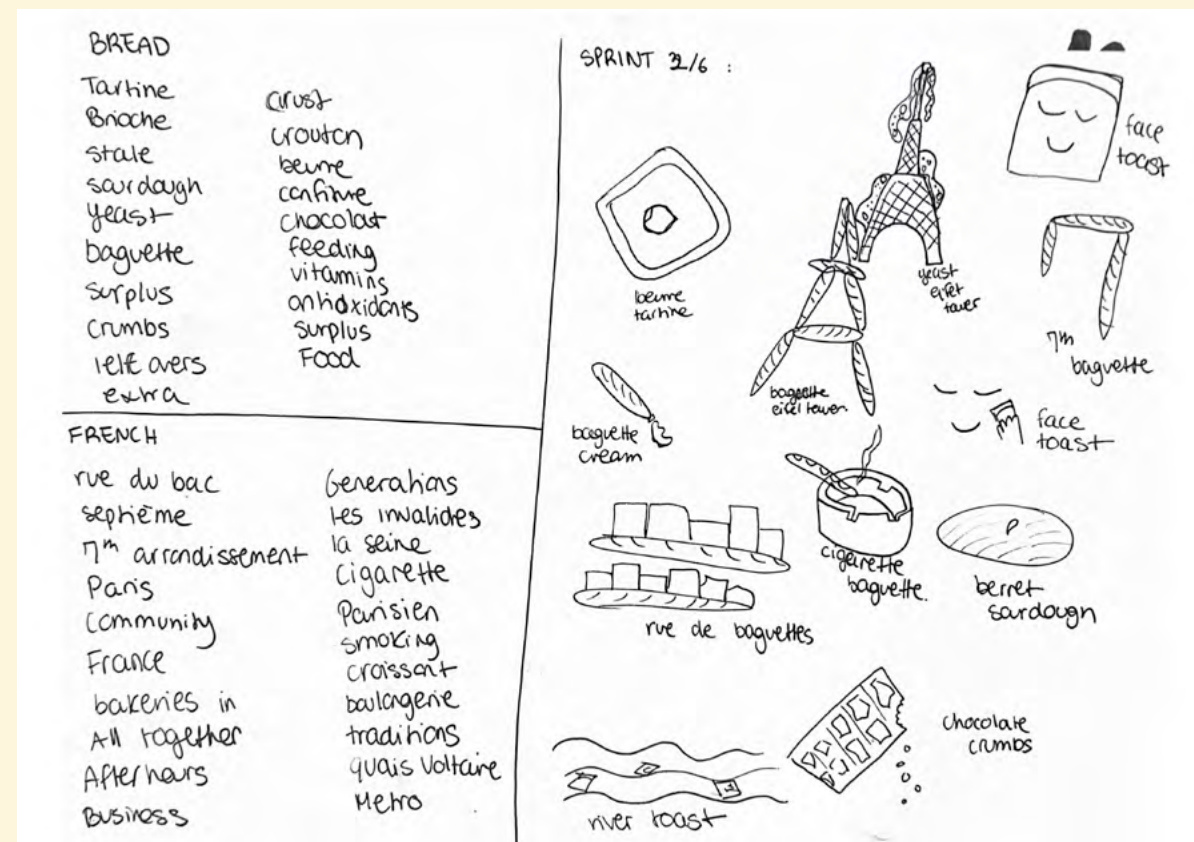 BREAD
Tartine
Brioche
stale
sourdough
yeast
baguette
surplus
crumbs
extra
crust
crouton
beurre
confiture
chocolat
feeding
vitamins
antioxidants
surplus
Food
FRENCH
rue du bac
septième
7th arrondissement
Paris
Community
France
bakeries in
All together
After hours
Business
Generations
Les invalides
la seine
Cigarette
Parisien
smoking
croissant
boulangerie
traditions
quais Voltaire
Metro
SPRINT /6 :
beurre
tartine
yeast
eiffel
tower
face
toast
7th
baguette
baguette
eiffel tower
baguette
cream
face
toast
cigarette
baguette.
berret
sourdough
rue de baguettes
chocolate
crumbs
river toast